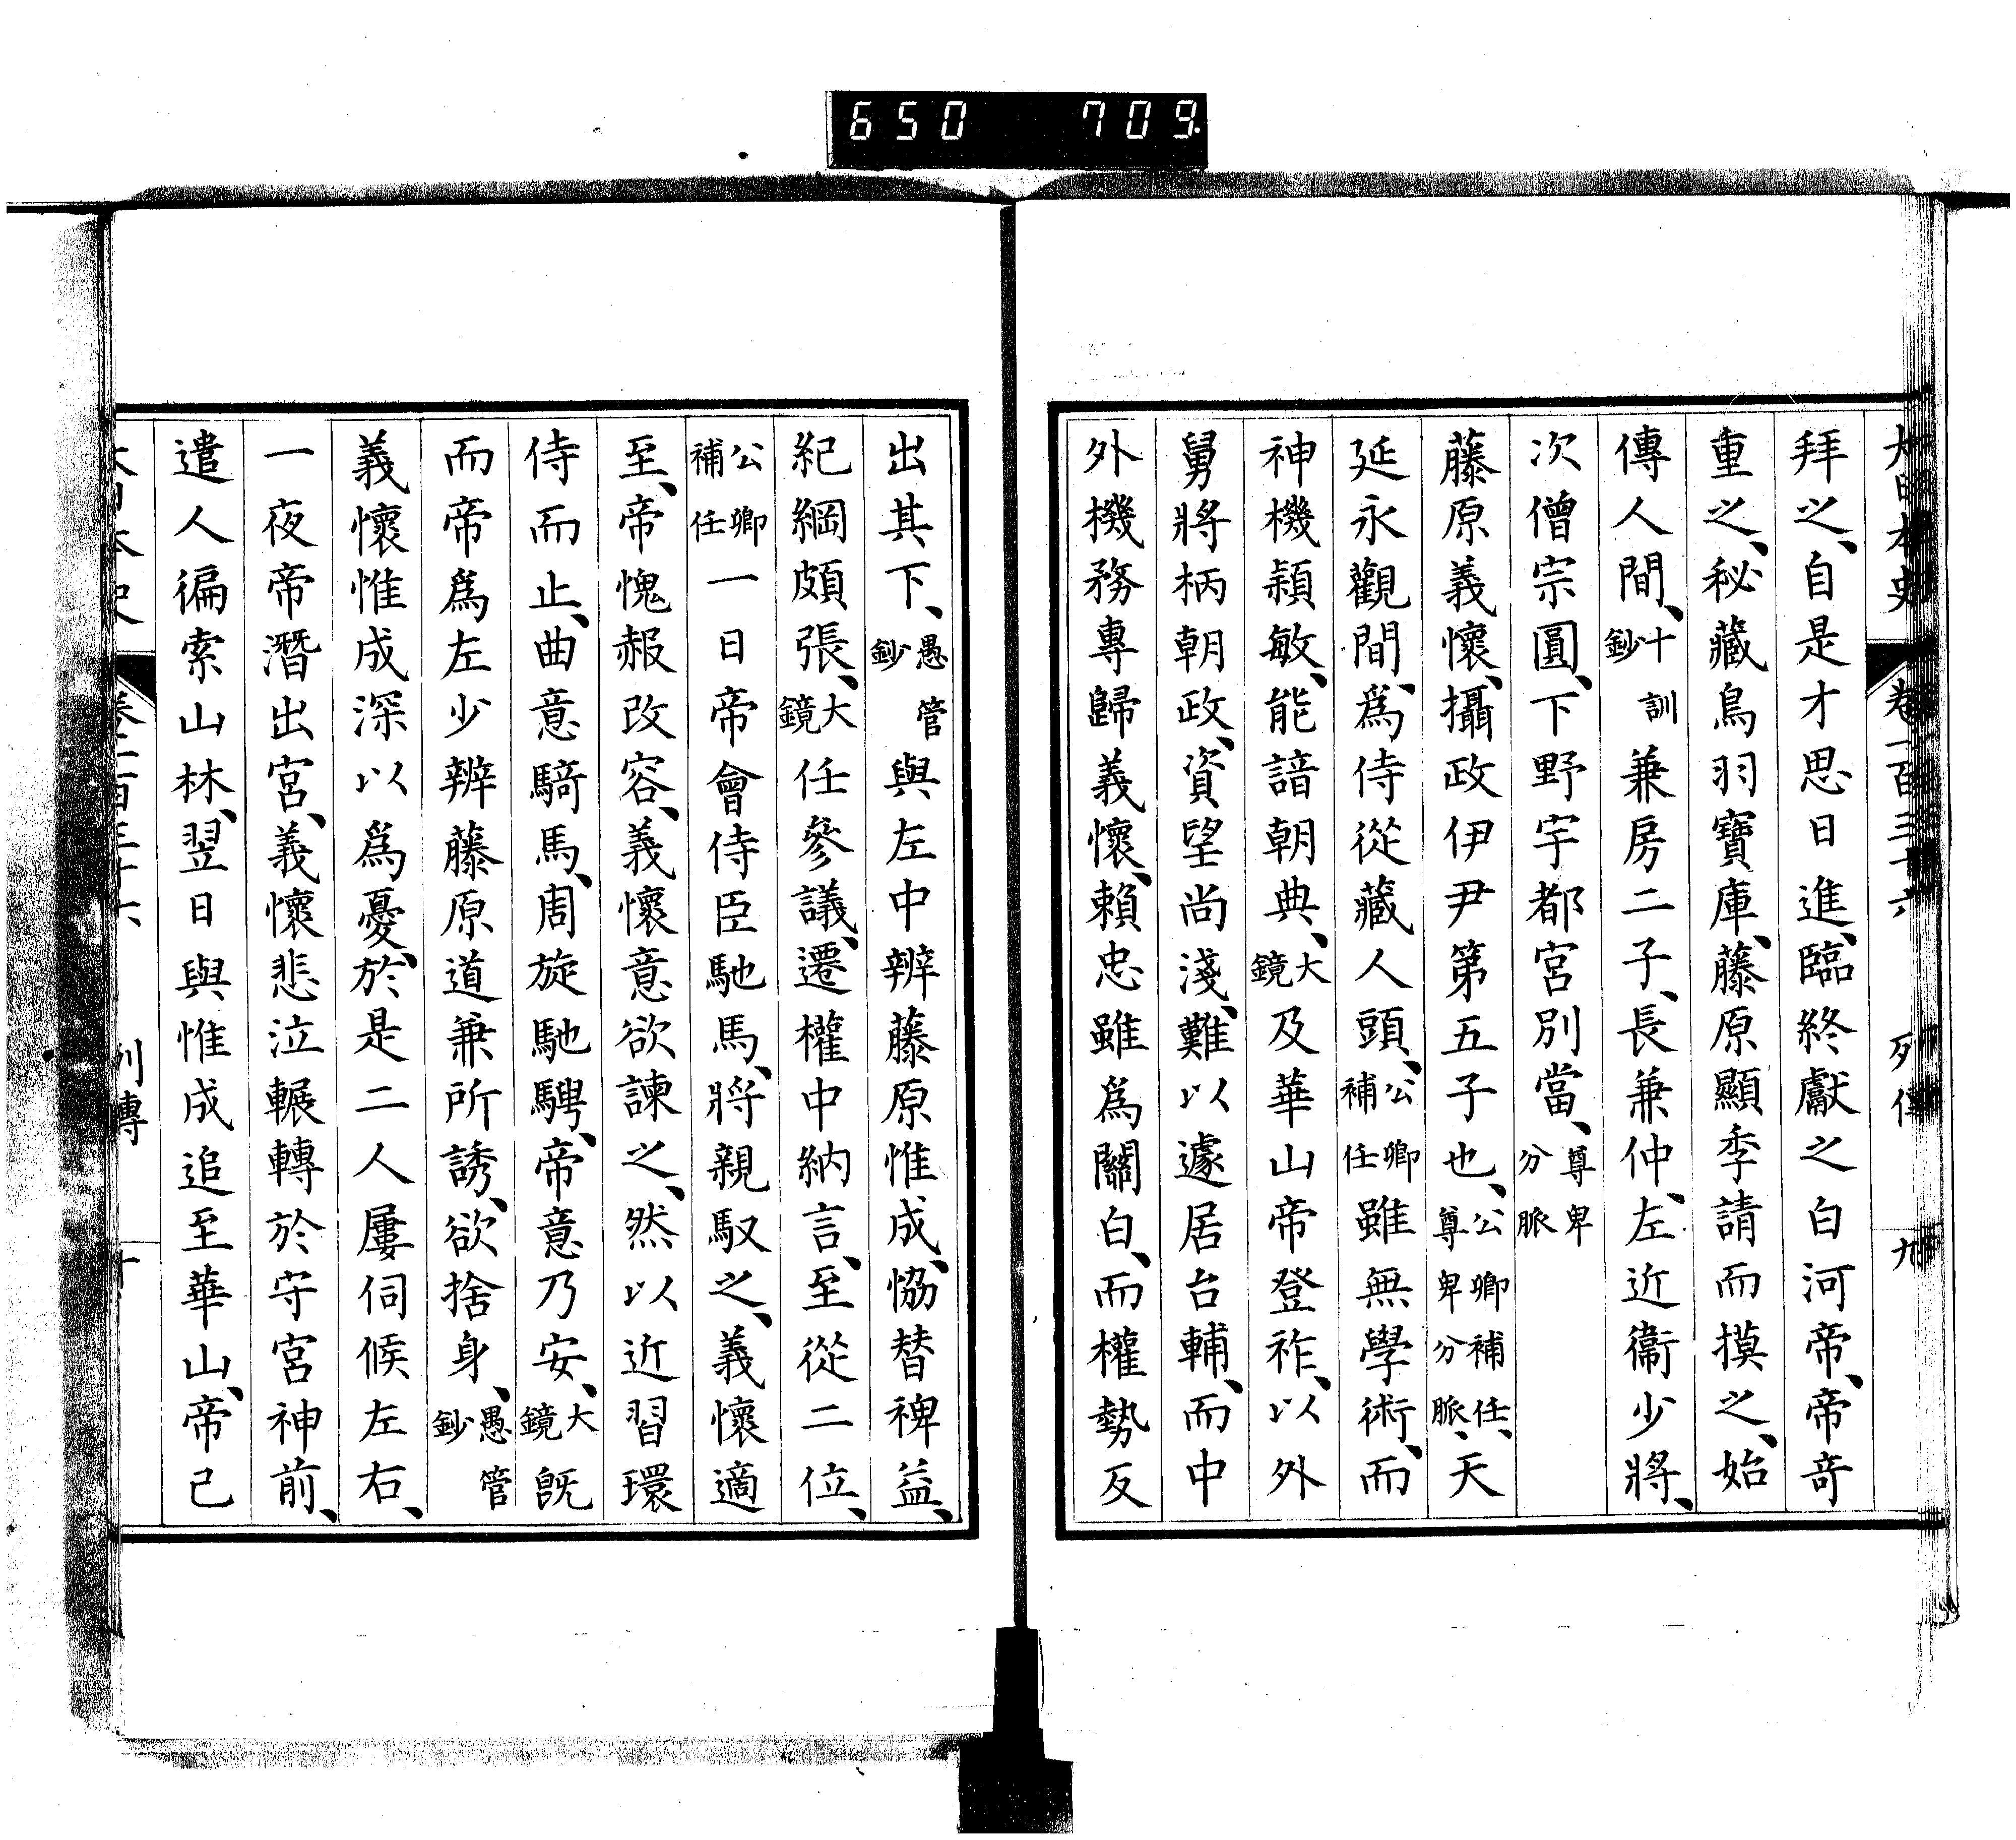 650 709
大日本史 卷一百三十六 列傳 九
拜之、自是才思日進、臨終獻之白河帝、帝奇
重之、秘藏鳥羽寶庫、藤原顯季請而摸之、始
傳人間、十訓鈔兼房二子、長兼仲、左近衞少將、
次僧宗圓、下野宇都宮別當、尊卑分脈
藤原義懷、攝政伊尹第五子也、公卿補任、尊卑分脈、天
延永觀間、爲侍從藏人頭、公卿補任雖無學術、而
神機穎敏、能諳朝典、大鏡及華山帝登祚、以外
舅將柄朝政、資望尚淺、難以遽居台輔、而中
外機務專歸義懷、賴忠雖爲關白、而權勢反
出其下、愚管鈔與左中辨藤原惟成、恊替裨益、
紀綱頗張、大鏡任參議、遷權中納言、至從二位、
公卿補任一日帝會侍臣馳馬、將親馭之、義懷適
至、帝愧赧改容、義懷意欲諫之、然以近習環
侍而止、曲意騎馬、周旋馳騁、帝意乃安、大鏡旣
而帝爲左少辨藤原道兼所誘、欲捨身、愚管鈔
義懷惟成深以爲憂、於是二人屢伺候左右、
一夜帝潛出宮、義懷悲泣輾轉於守宮神前、
遣人徧索山林、翌日與惟成追至華山、帝已
大日本史 卷一百三十六 列傳 十